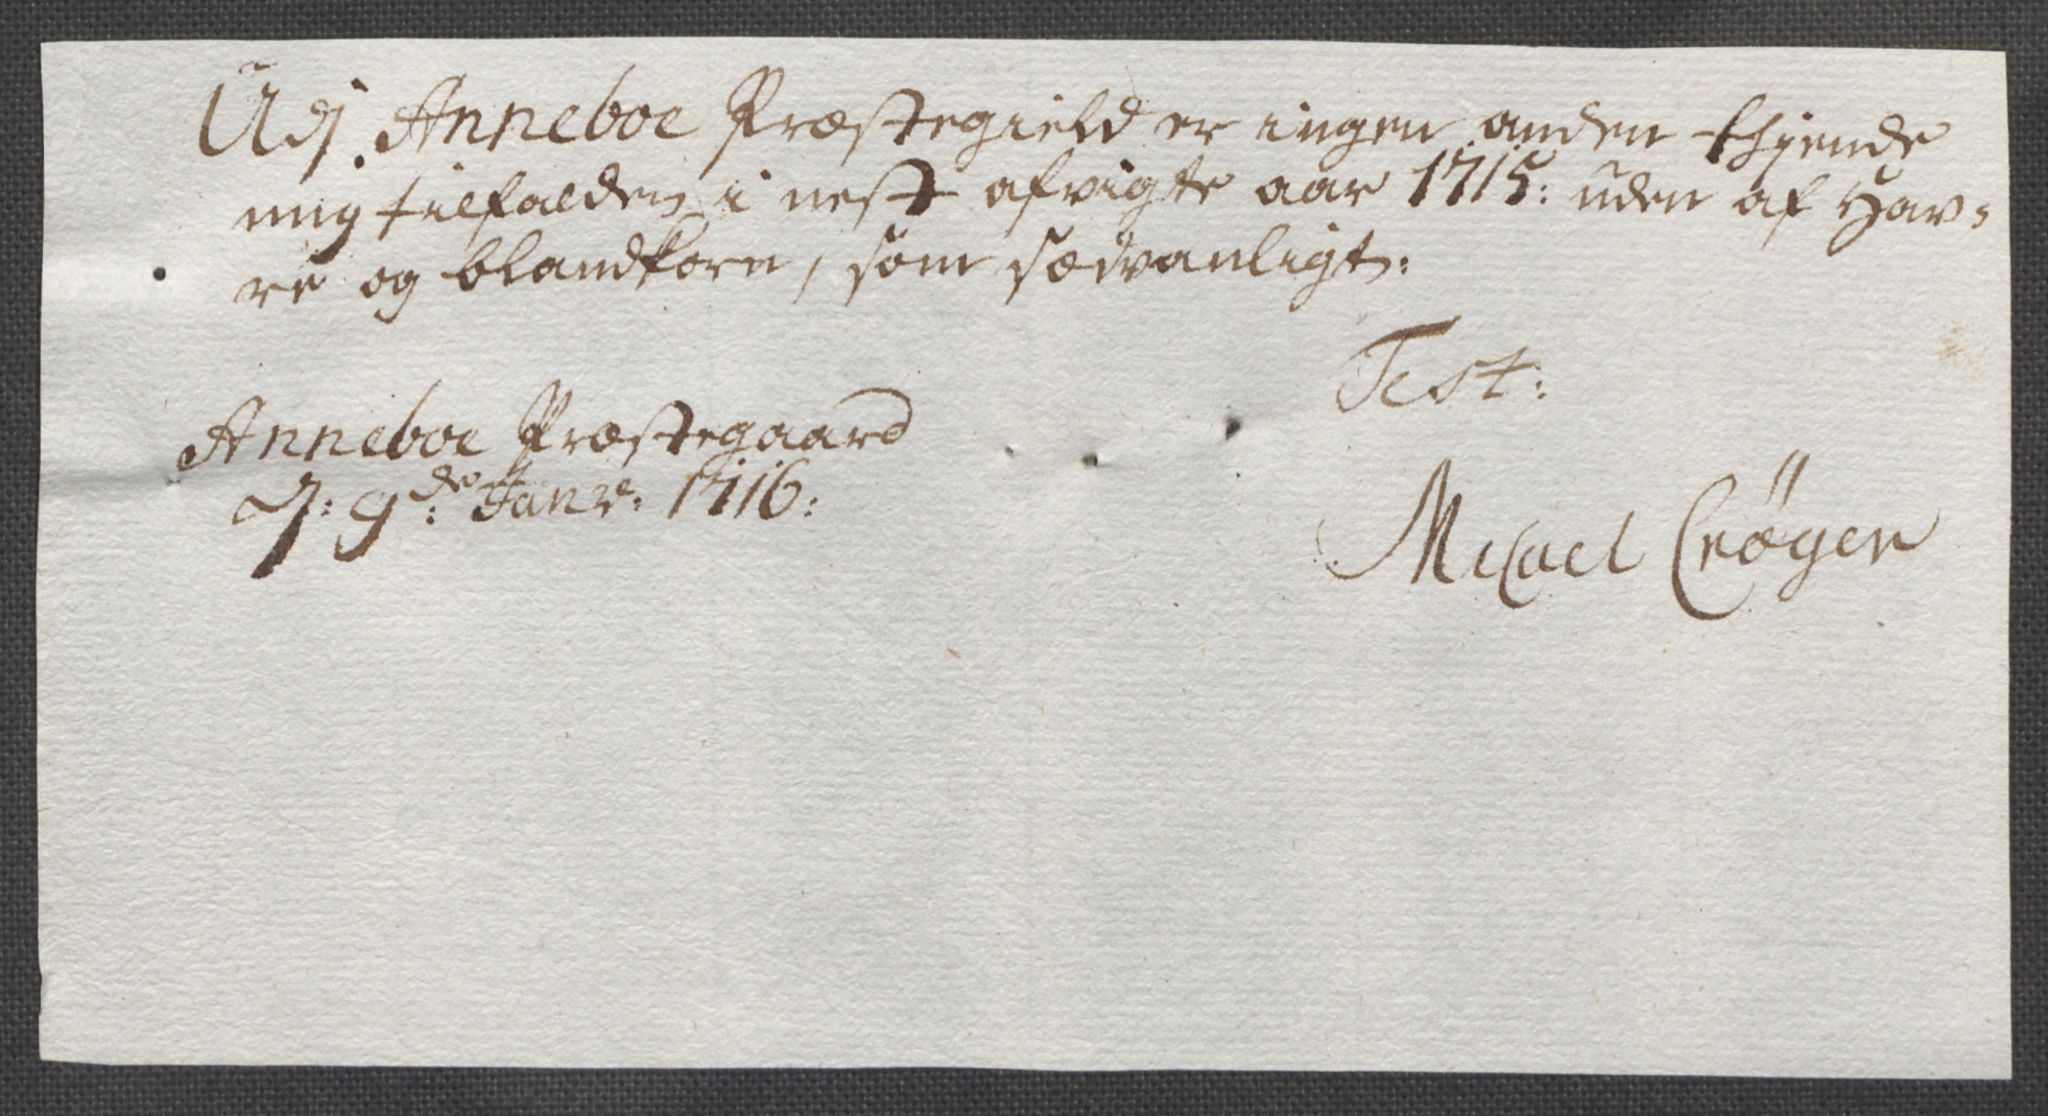 Udj Anneboe Præstegield er ingen anden thjende
mig tilfalden i nest afvigte aar 1715: uden af Hav=
re og blandkorn, som sædvanligt.
Test:
Anneboe Præstegaard
d: 9de Janv: 1716:
Micael Crøger